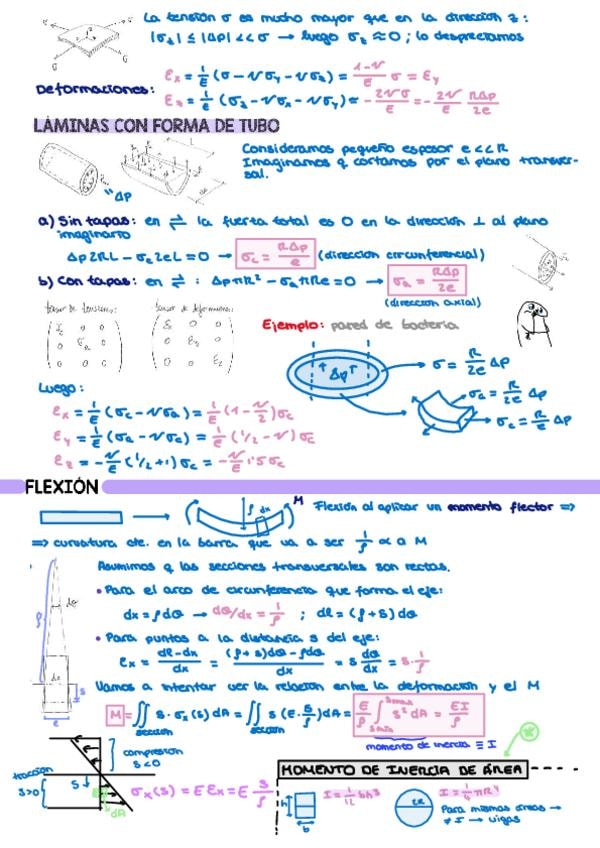 La tensión σ es mucho mayor que en la dirección z:
|σz| ≤ |Δp| << σ → luego σz ≈ 0; la despreciamos
Deformaciones: εx = 1/E (σ - νσy - νσz) = (1-ν)/E σ = εy
εz = 1/E (σz - νσx - νσy) = - 2νσ/E = - 2ν/E RΔp/2e
LÁMINAS CON FORMA DE TUBO
Consideramos pequeño espesor e << R
Imaginamos q cortamos por el plano transver-
sal.
Δp
a) Sin tapas: en ⇌ la fuerza total es 0 en la dirección ⊥ al plano
imaginario
Δp2RL - σc2eL = 0 → σc = RΔp/e (dirección circunferencial)
b) Con tapas: en ⇌ : ΔpπR² - σaπRe = 0 → σa = RΔp/2e
(dirección axial)
tensor de tensiones: tensor de deformaciones:
Ejemplo: pared de bacteria
↑ Δp ↑
σ = R/2e Δp
σa = R/2e Δp
σc = R/e Δp
Luego:
εx = 1/E (σc - νσa) = 1/E (1 - ν/2) σc
εy = 1/E (σa - νσc) = 1/E (1/2 - ν) σc
εz = - ν/E (1/2 + 1) σc = - ν/E 1'5 σc
FLEXIÓN
ρ dx M
Flexión al aplicar un momento flector ⇒
⇒ curvatura cte. en la barra que va a ser 1/ρ ∝ a M
Asumimos q las secciones transversales son rectas.
• Para el arco de circunferencia que forma el eje:
dx = ρdθ → dθ/dx = 1/ρ ; dl = (ρ + s) dθ
• Para puntos a la distancia s del eje:
εx = (dl - dx)/dx = ((ρ + s)dθ - ρdθ)/dx = s dθ/dx = s · 1/ρ
ρ dθ dx s e
Vamos a intentar ver la relación entre la deformación y el M
M = ∬ s · σx(s) dA = ∬ s (E · s/ρ) dA = E/ρ ∫ s² dA = EI/ρ
sección sección smin smax
momento de inercia ≡ I
compresión
s<0
tracción
s>0
s
dA
σx(s) = E εx = E s/ρ
MOMENTO DE INERCIA DE ÁREA
h b I = 1/12 bh³
2R I = 1/4 πR⁴
Para mismas áreas →
≠ I → vigas